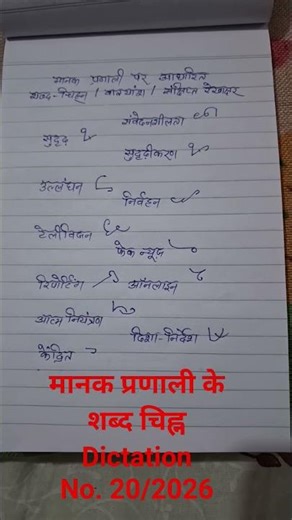 मानक प्रणाली पर आधारित
शब्द-चिह्न / वाक्यांश / संक्षिप्त रेखाक्षर
संवेदनशीलता
सुदृढ़
सुदृढ़ीकरण
उल्लंघन
निर्वहन
टेलीविजन
फेक न्यूज
रिपोर्टिंग
ऑनलाइन
आत्म नियंत्रण
दिशा-निर्देश
केंद्रित
मानक प्रणाली के
शब्द चिह्न
Dictation
No. 20/2026